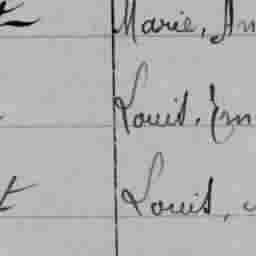 Marie, An
Louis, Em
t Louis,